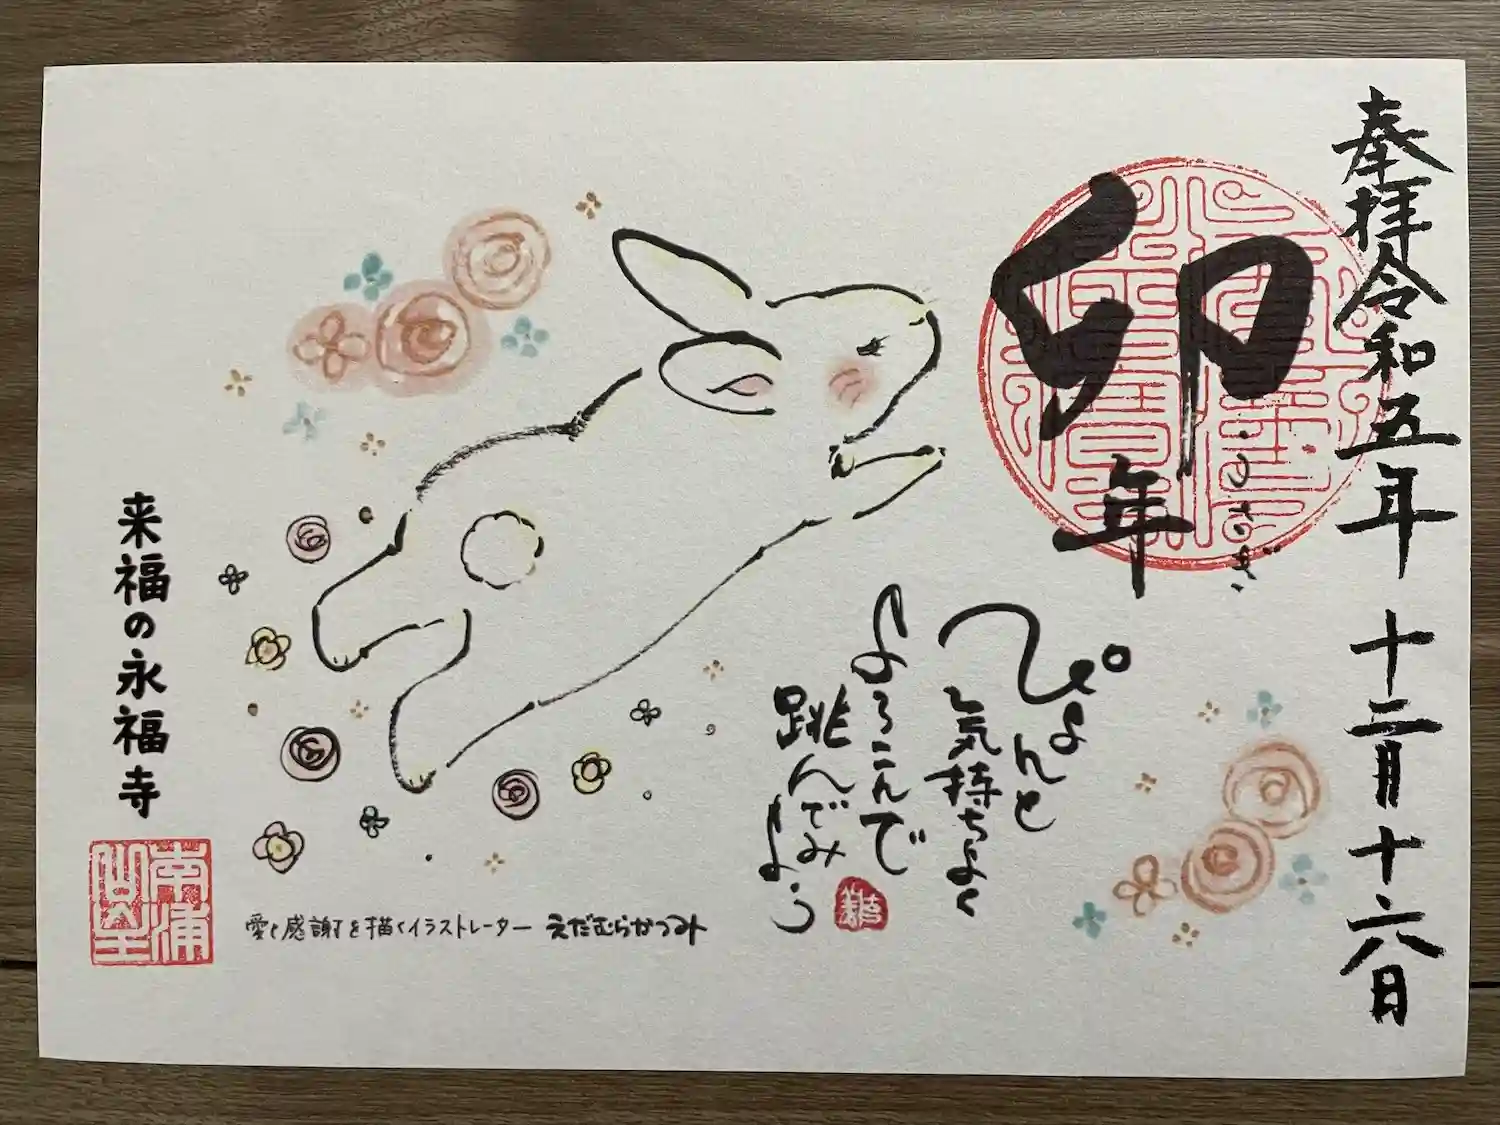 奉拝令和五年十二月十六日
卯年
うさぎ
ぴょんと
気持ちよく
よろこんで
跳んでみ
よう
来福の永福寺
愛と感謝を描くイラストレーター えだむらかつみ